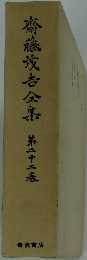 齋藤茂吉全集
第二十二巻
岩波書店